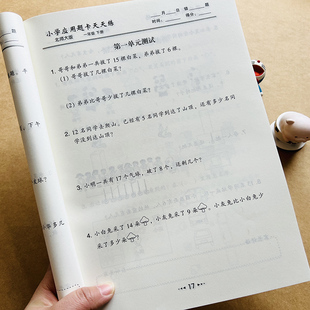 小学应用题卡天天练
北师大版 一年级 下册
第一单元测试
1. 哥哥和弟弟一共拔了15棵白菜，弟弟拔了6棵。
(1) 哥哥拔了几棵白菜？
(2) 弟弟比哥哥少拔了几棵白菜？
2. 12名同学去爬山，已经有5名同学到达了山顶，还有多少名同
学没到达山顶？
3. 小明一共有17个气球，破了8个，还剩几个？
4. 小白兔采了14朵，小灰兔采了9朵，小灰兔比小白兔少
采了多少朵？
17